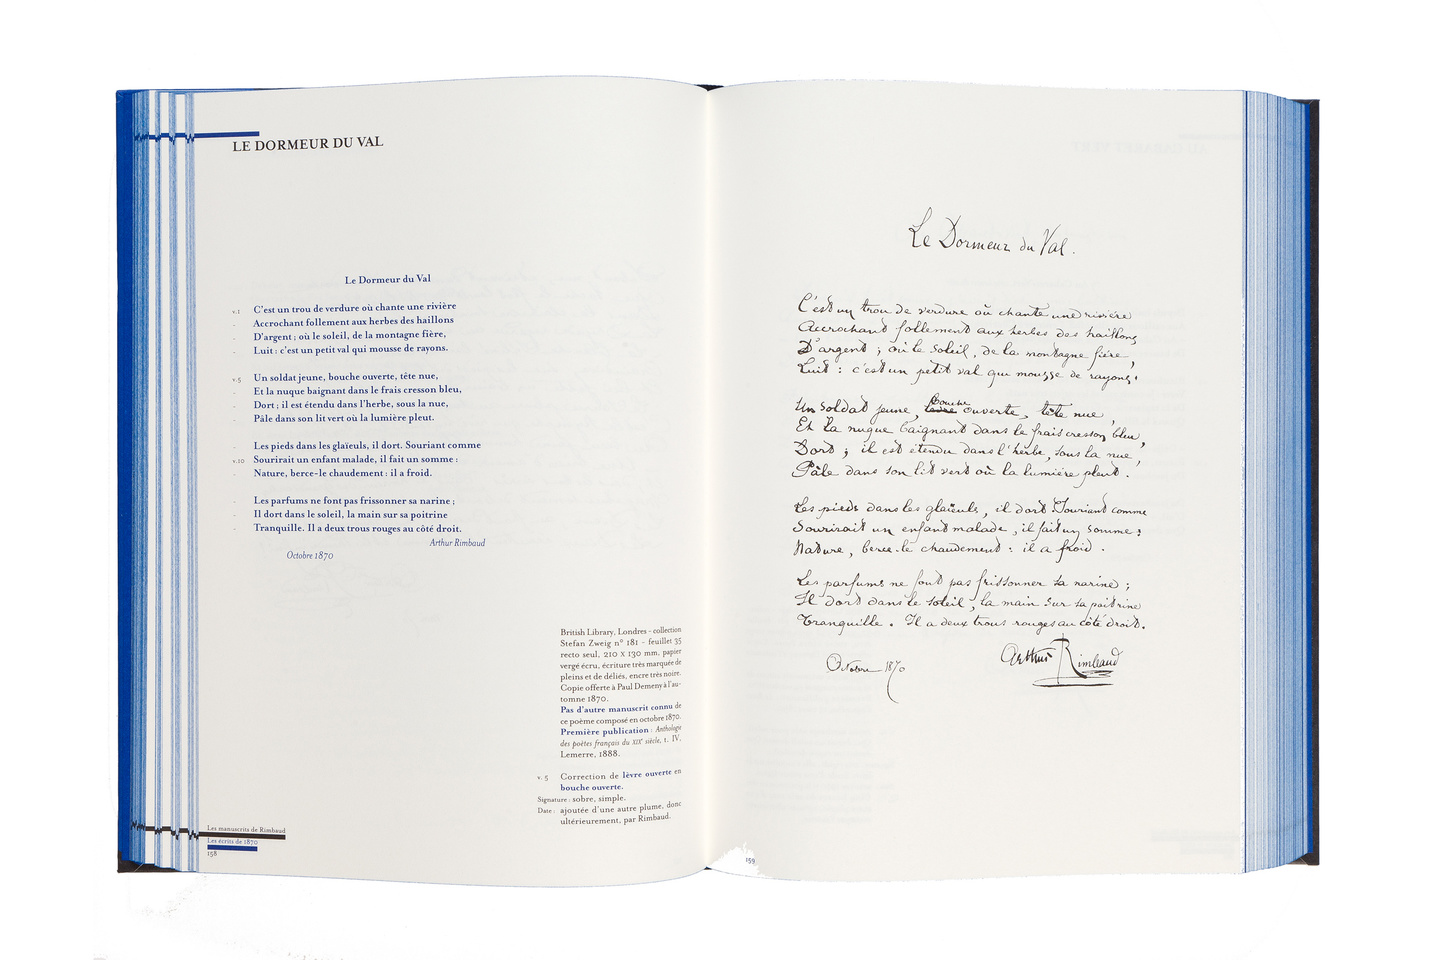 LE DORMEUR DU VAL
Le Dormeur du Val
v.1 C'est un trou de verdure où chante une rivière
- Accrochant follement aux herbes des haillons
- D'argent ; où le soleil, de la montagne fière,
- Luit : c'est un petit val qui mousse de rayons.
v.5 Un soldat jeune, bouche ouverte, tête nue,
- Et la nuque baignant dans le frais cresson bleu,
- Dort ; il est étendu dans l'herbe, sous la nue,
- Pâle dans son lit vert où la lumière pleut.
- Les pieds dans les glaïeuls, il dort. Souriant comme
v.10 Sourirait un enfant malade, il fait un somme :
- Nature, berce-le chaudement : il a froid.
- Les parfums ne font pas frissonner sa narine ;
- Il dort dans le soleil, la main sur sa poitrine
- Tranquille. Il a deux trous rouges au côté droit.
Arthur Rimbaud
Octobre 1870
British Library, Londres - collection
Stefan Zweig n° 181 - feuillet 35
recto seul, 210 x 130 mm, papier
vergé écru, écriture très marquée de
pleins et de déliés, encre très noire.
Copie offerte à Paul Demeny à l'au-
tomne 1870.
Pas d'autre manuscrit connu de
ce poème composé en octobre 1870.
Première publication : Anthologie
des poètes français du XIXe siècle, t. IV,
Lemerre, 1888.
v. 5 Correction de lèvre ouverte en
bouche ouverte.
Signature : sobre, simple.
Date : ajoutée d'une autre plume, donc
ultérieurement, par Rimbaud.
Les manuscrits de Rimbaud
Les écrits de 1870
158
Le Dormeur du Val.
C'est un trou de verdure où chante une rivière
Accrochant follement aux herbes des haillons
D'argent ; où le soleil, de la montagne fière,
Luit : c'est un petit val qui mousse de rayons.
Un soldat jeune, lèvre bouche ouverte, tête nue,
Et la nuque baignant dans le frais cresson bleu,
Dort ; il est étendu dans l'herbe, sous la nue,
Pâle dans son lit vert où la lumière pleut.
Les pieds dans les glaïeuls, il dort. Souriant comme
Sourirait un enfant malade, il fait un somme :
Nature, berce-le chaudement : il a froid.
Les parfums ne font pas frissonner sa narine ;
Il dort dans le soleil, la main sur sa poitrine
Tranquille. Il a deux trous rouges au côté droit.
Arthur Rimbaud
Octobre 1870
159